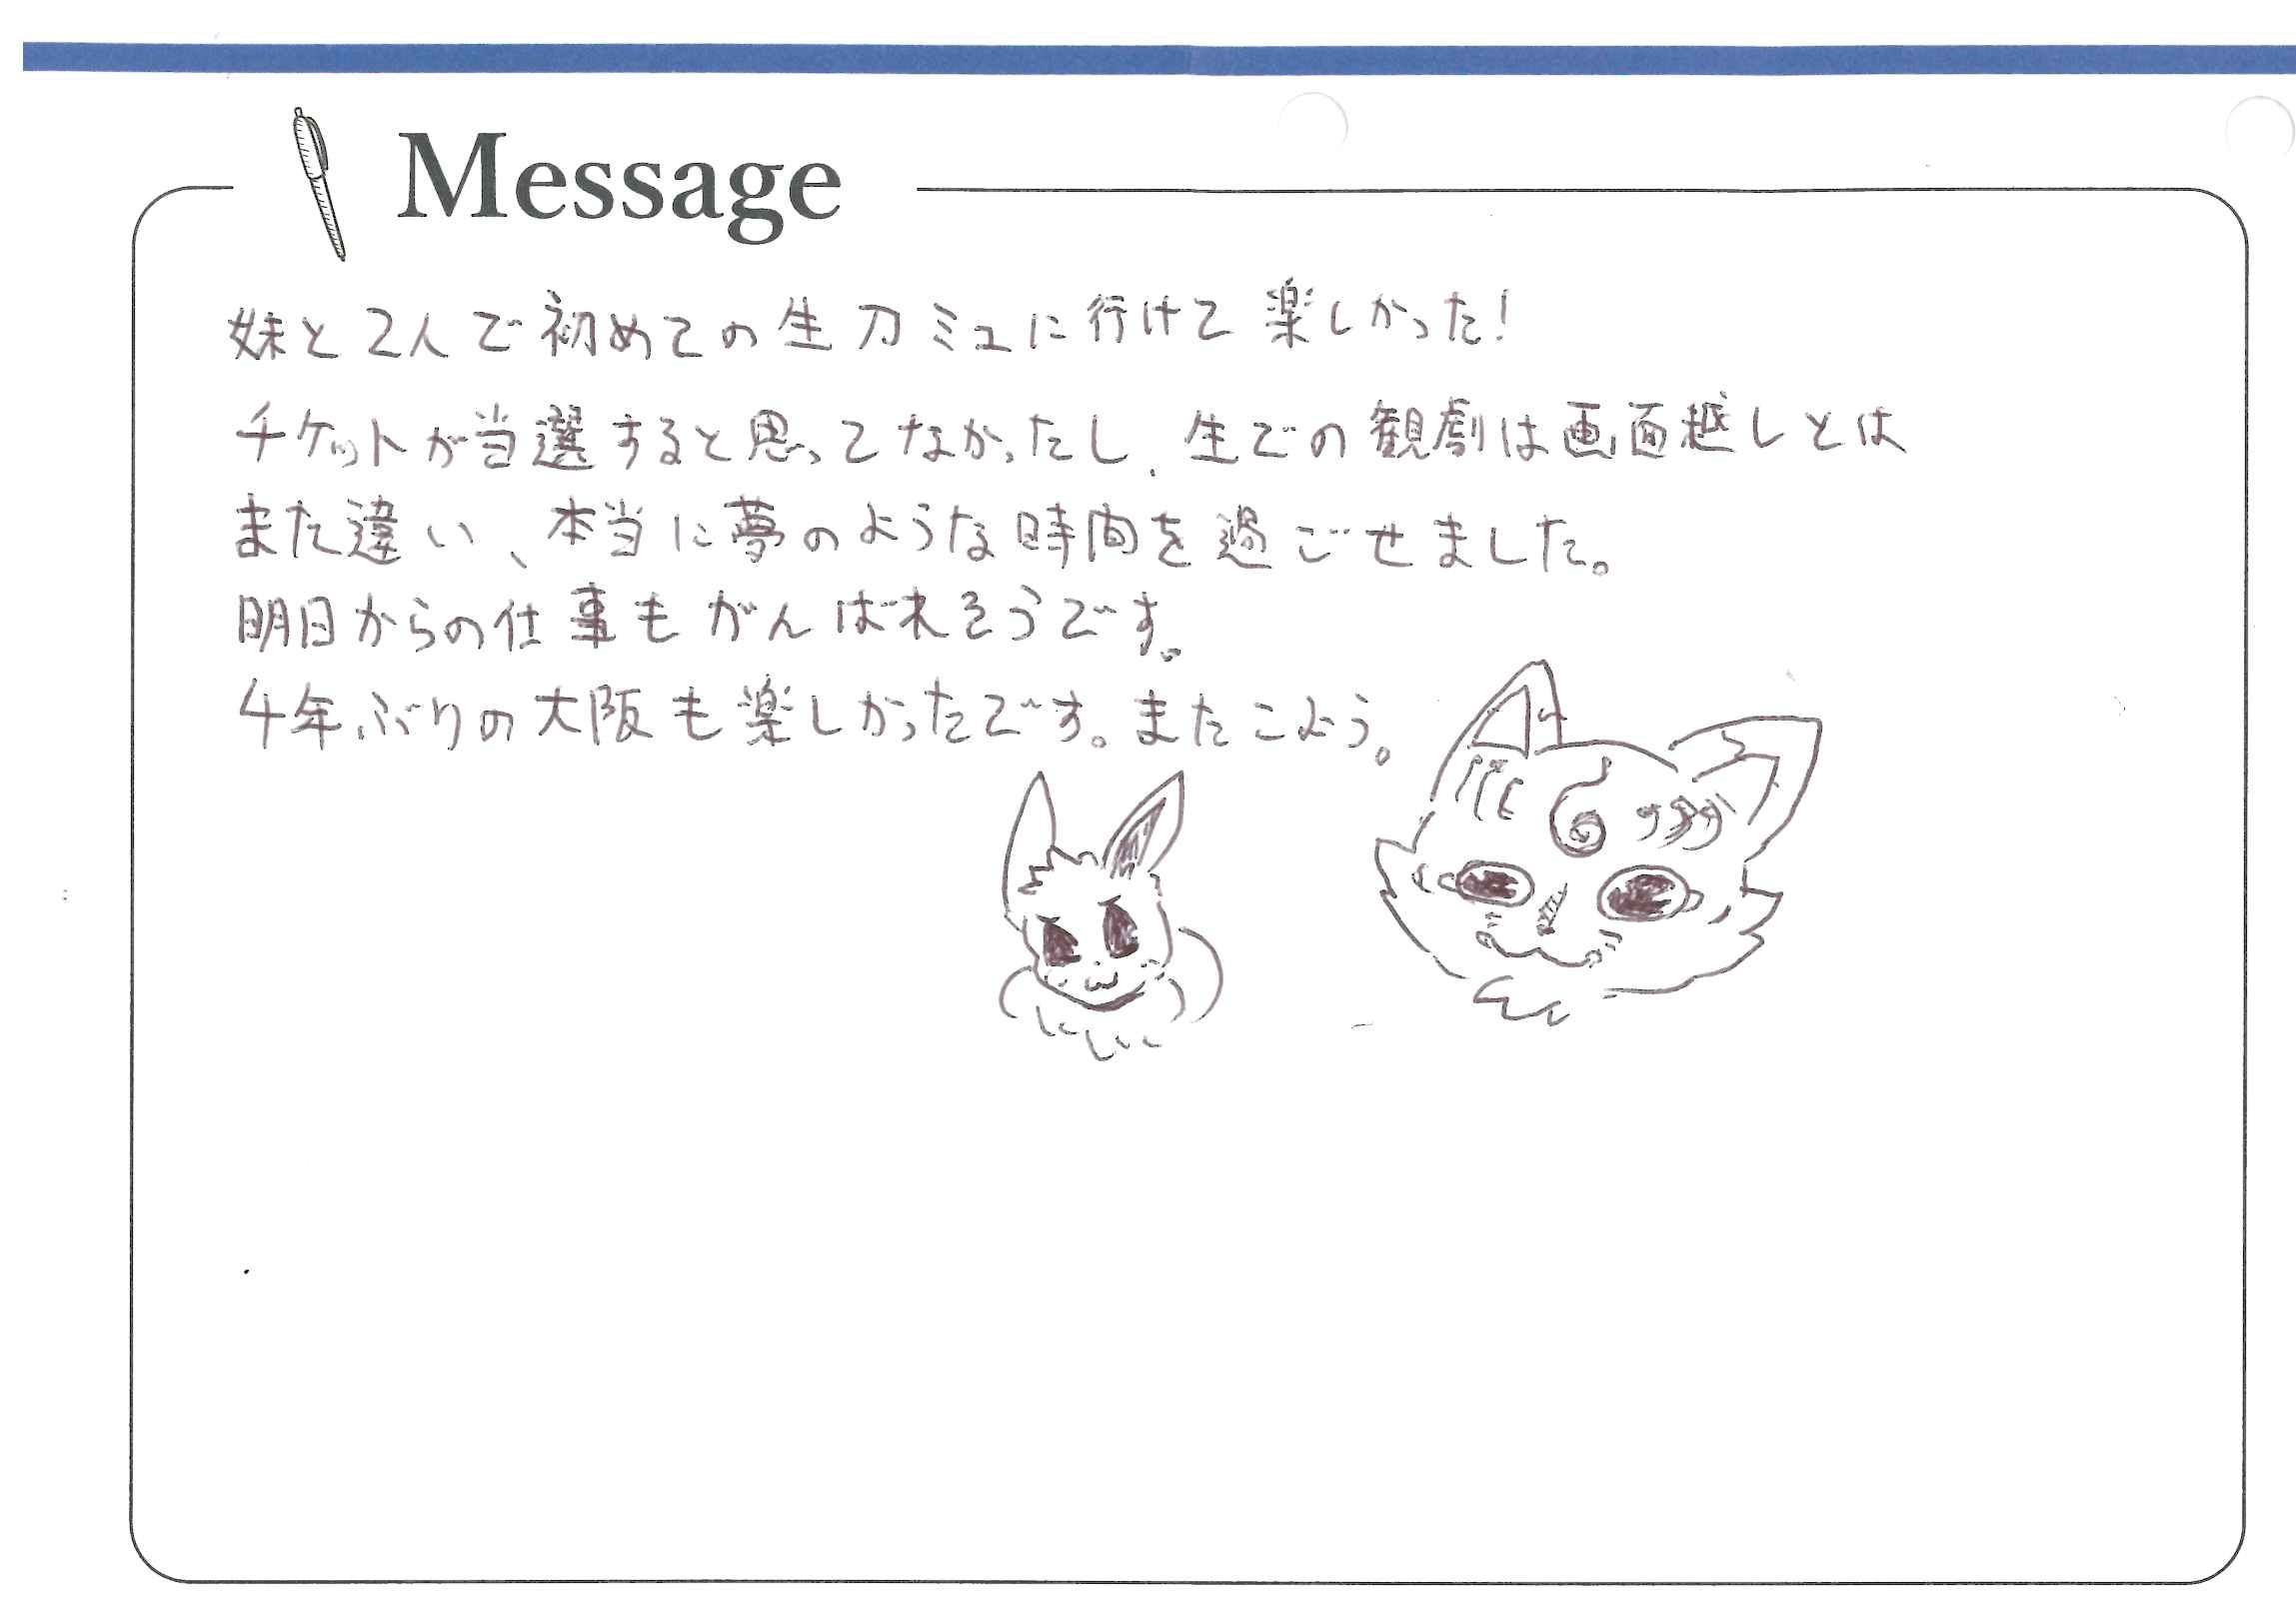 Message
妹と2人で初めての生刀ミュに行けて楽しかった!
チケットが当選すると思ってなかったし、生での観劇は画面越しとは
また違い、本当に夢のような時間を過ごせました。
明日からの仕事もがんばれそうです。
4年ぶりの大阪も楽しかったです。またこよう。